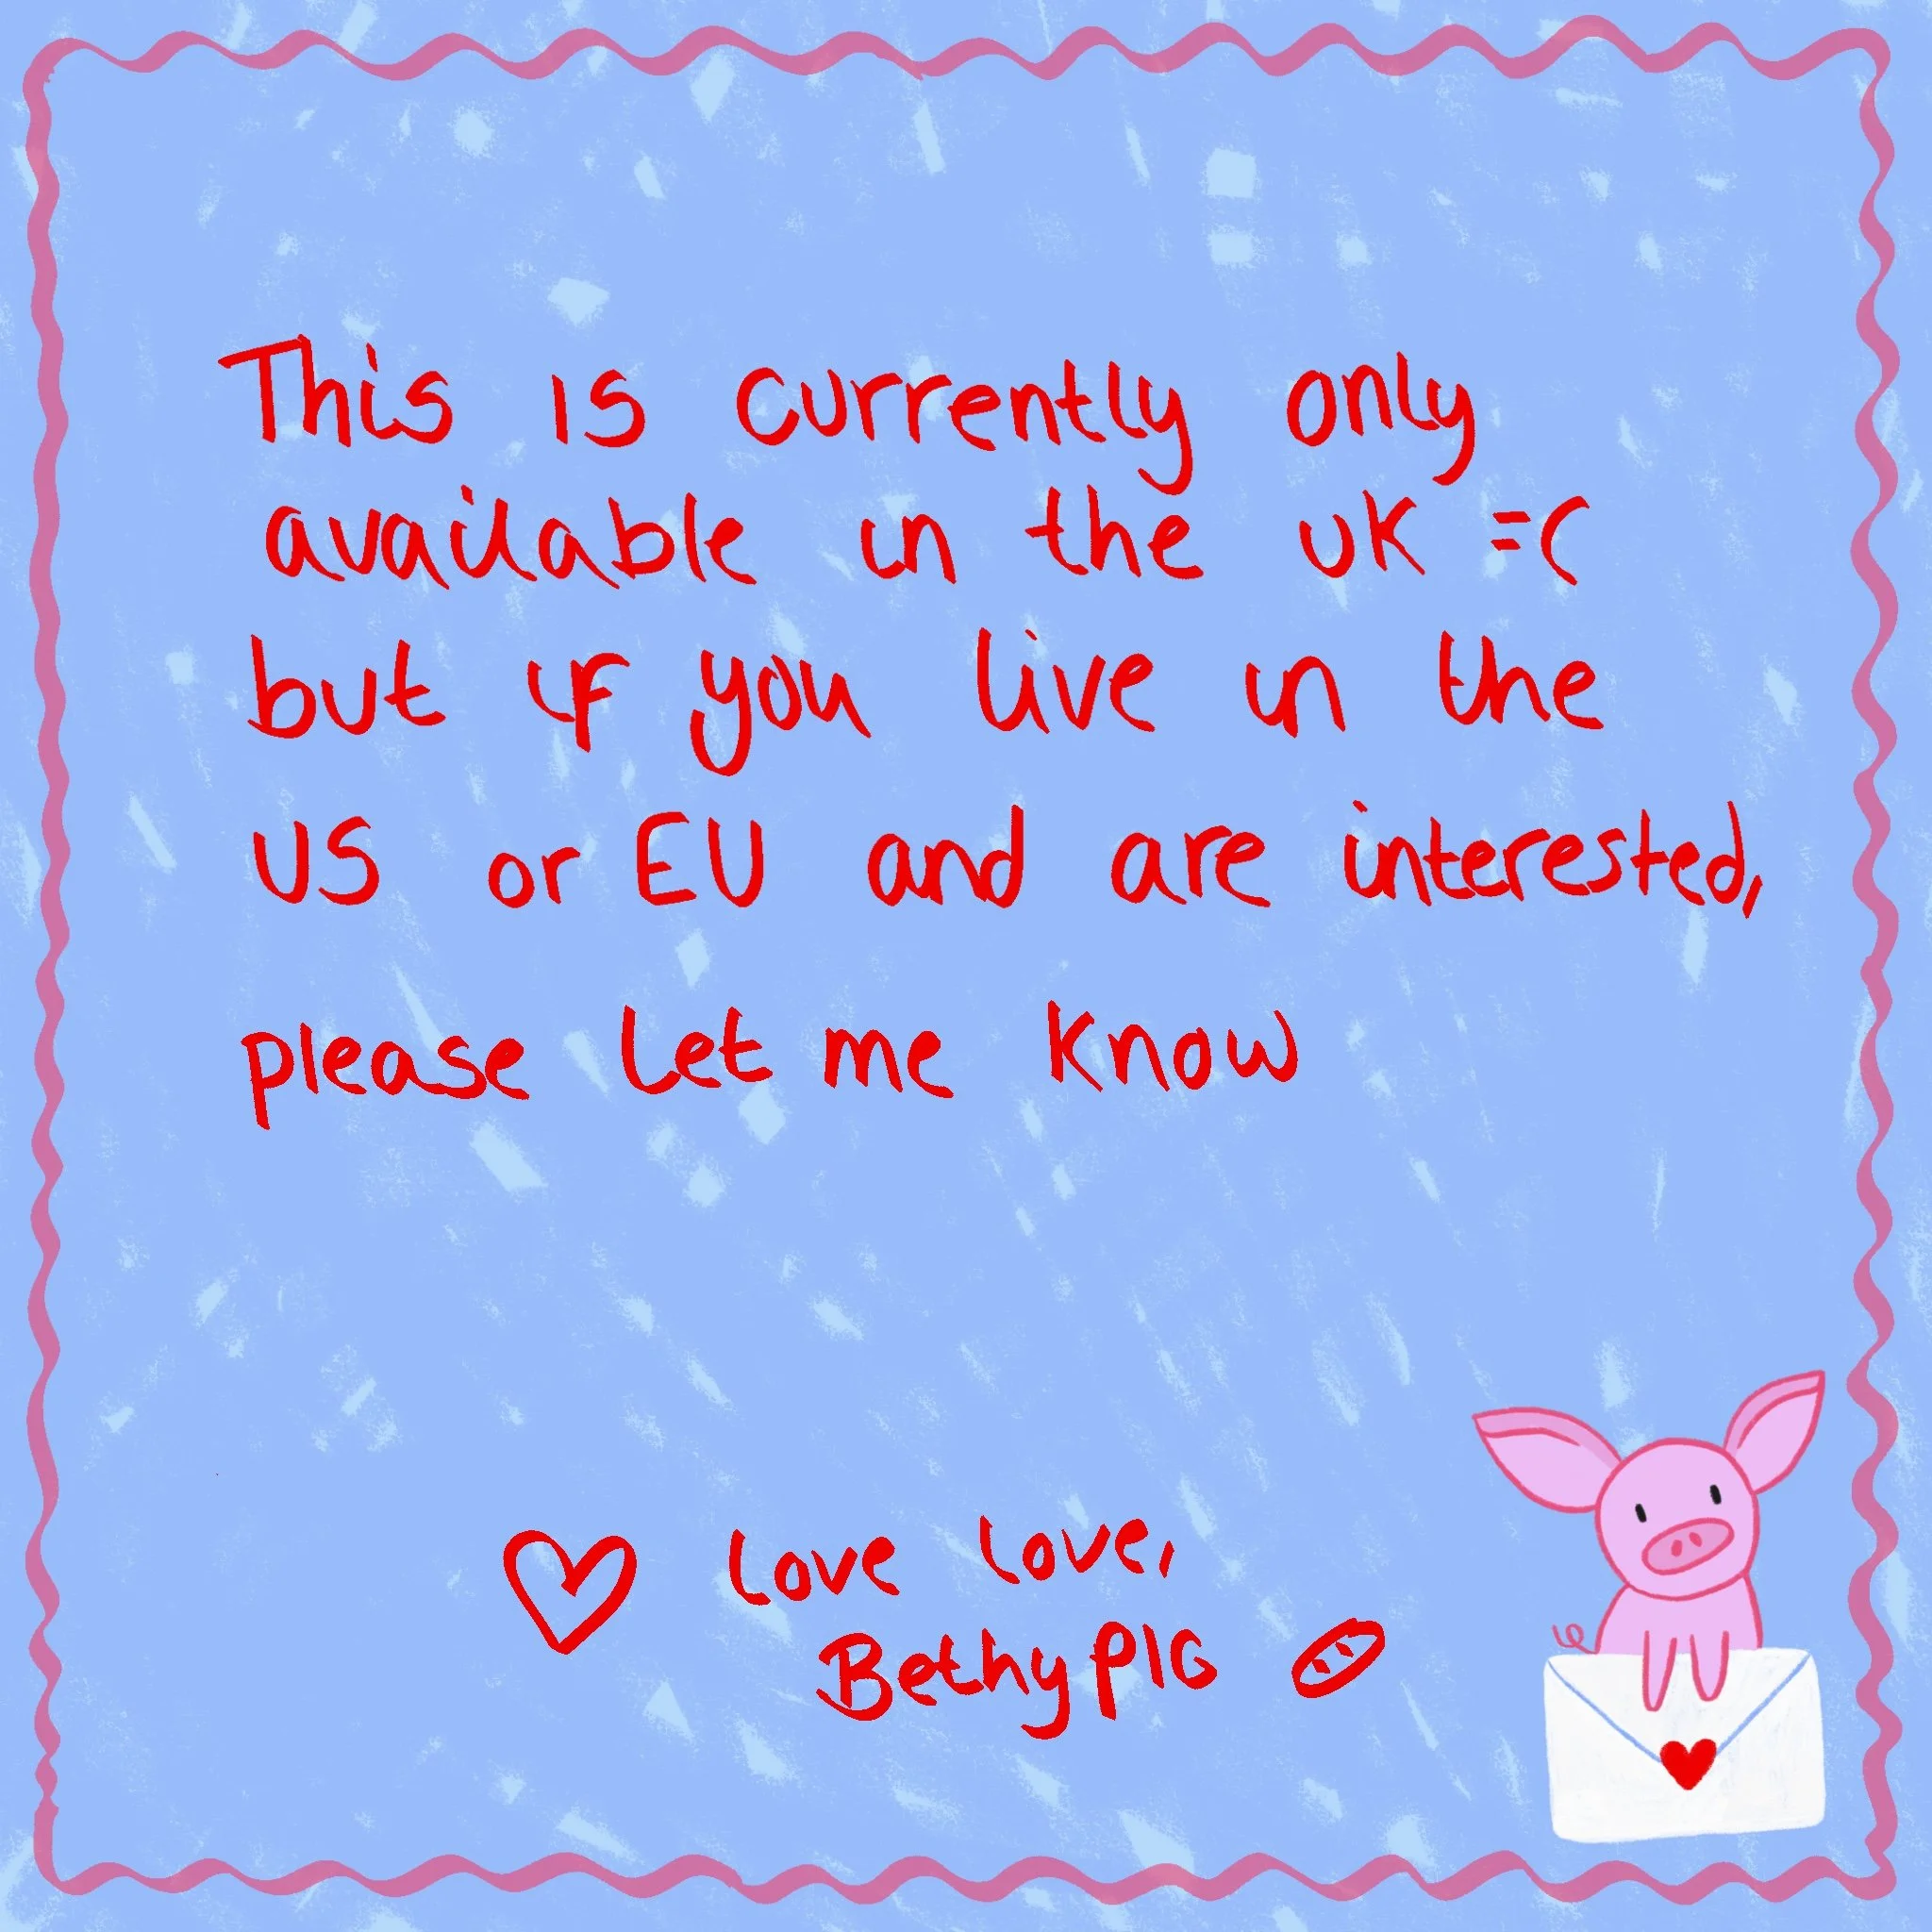 This is currently only
available in the UK =(
but if you live in the
US or EU and are interested,
please let me know
love love,
BethyPIG